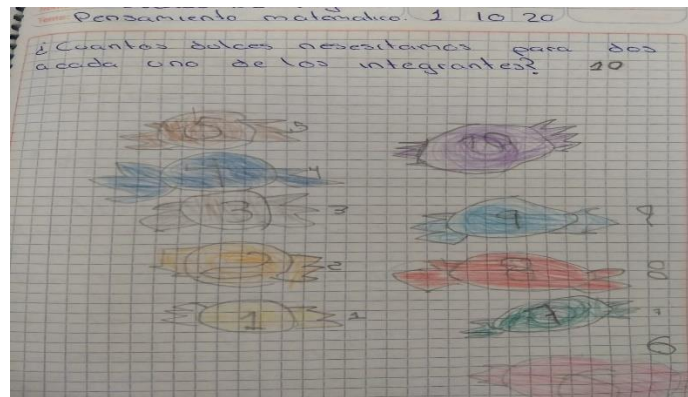 Pensamiento matematico. 1 10 20
¿Cuantos dulces nesesitamos para dos
a cada uno de los integrantes? 10
5 5
4
3 3
2 2
1 1
10
9 9
8 8
7
6